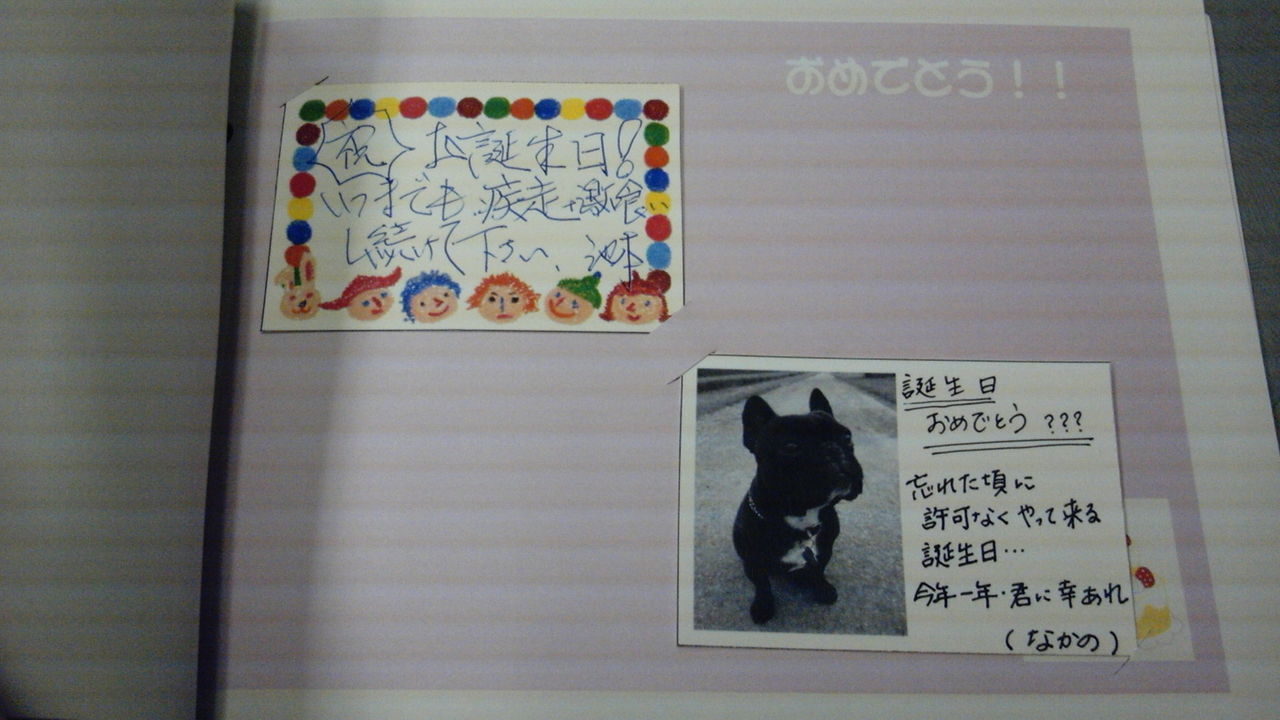 おめでとう！！
祝 お誕生日!
いつまでも疾走や激喰い
し続けて下さい、池本
誕生日
おめでとう???
忘れた頃に
許可なくやって来る
誕生日…
今年一年・君に幸あれ
(なかの)